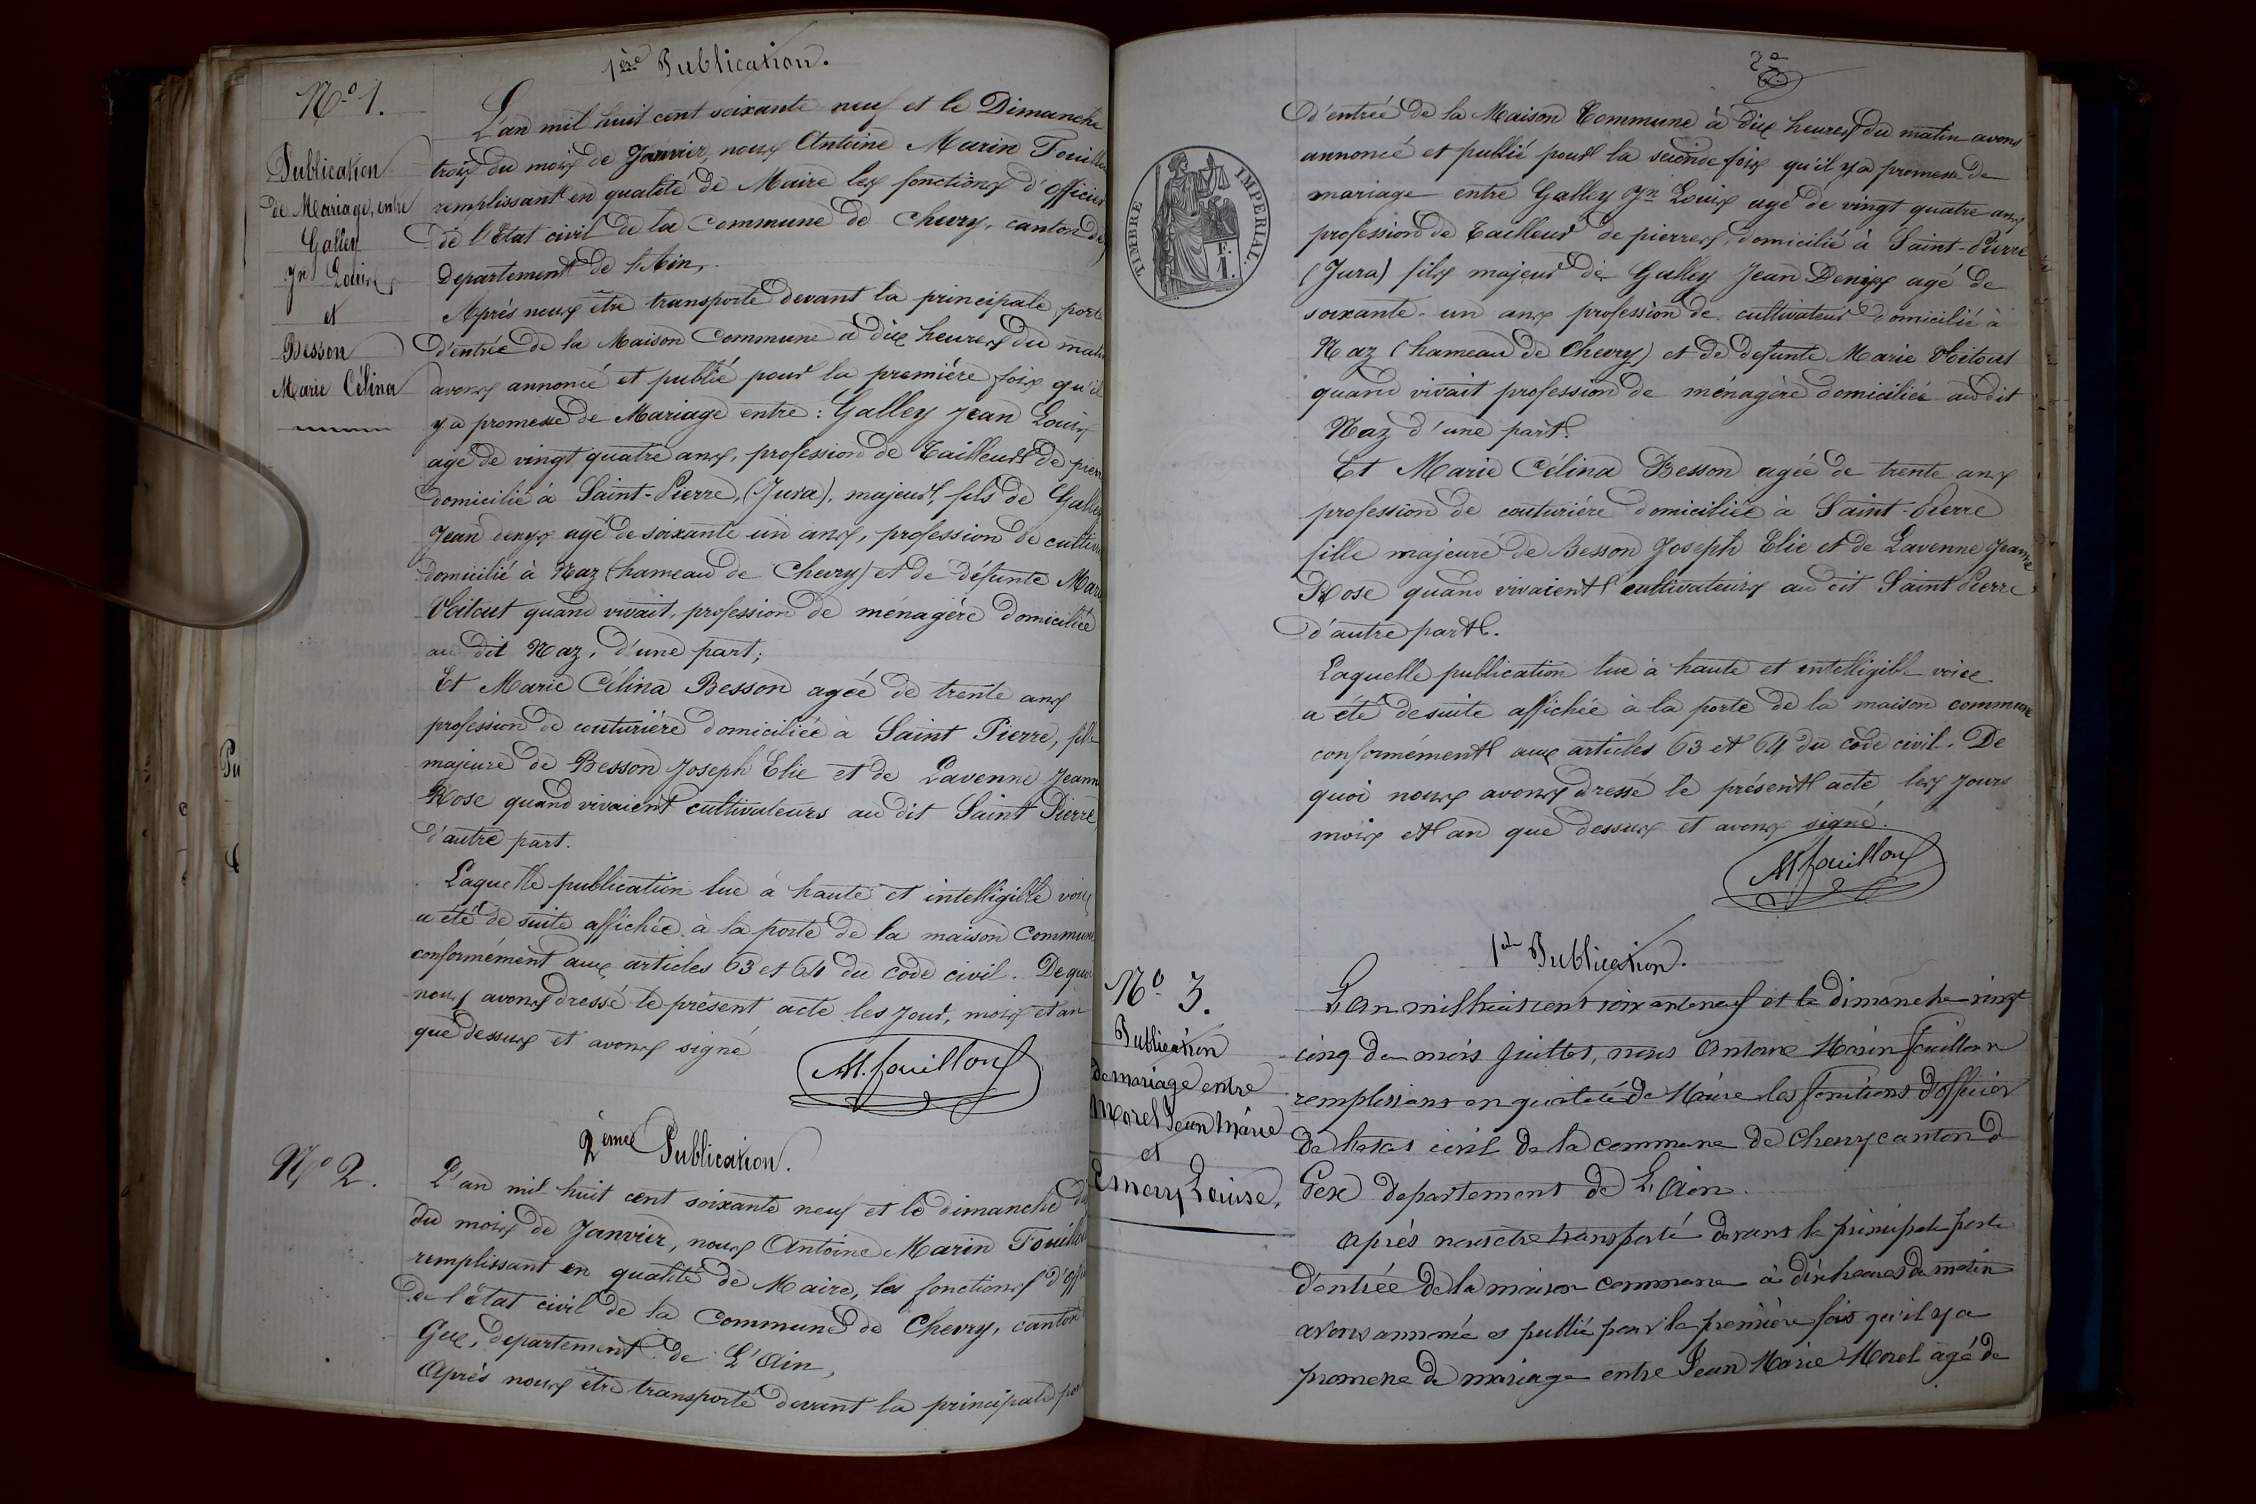 1ère Publication.
N° 1.
L'an mil huit cent soixante neuf et le Dimanche
trois du mois de Janvier, nous Antoine Marin Fouilloux
remplissant en qualité de Maire les fonctions d'officier
de l'Etat civil de la Commune de Chevry, canton de
Departement de l'Ain,
Publication
de Mariage, entre
Galley
Jn Louis
et
Besson
Marie Célina
Après nous être transporté devant la principale porte
d'entrée de la Maison Commune à dix heures du matin
avons annoncé et publié pour la première fois qu'il
y a promesse de Mariage entre : Galley Jean Louis
agé de vingt quatre ans, profession de Tailleur de pierre
domicilié à Saint-Pierre, (Jura), majeur, fils de Galley
Jean denys agé de soixante un ans, profession de cultiv
domicilié à Naz (hameau de Chevry) et de défunte Marie
Voitout quand vivait, profession de ménagère domiciliée
au dit Naz, d'une part;
Et Marie Célina Besson agée de trente ans
profession de couturière domiciliée à Saint Pierre, fille
majeure de Besson Joseph Elie et de Lavenne Jeanne
Rose quand vivaient cultivateurs au dit Saint Pierre,
d'autre part.
Laquelle publication lue à haute et intelligible voix
a été de suite affichée à la porte de la maison Commune
conformément aux articles 63 et 64 du code civil. De quoi
nous avons dressé le présent acte les jour, mois et an
que dessus et avons signé
AM. fouilloux
2ème Publication.
N° 2.
L'an mil huit cent soixante neuf et le dimanche dix
du mois de Janvier, nous Antoine Marin Fouilloux
remplissant en qualité de Maire, les fonctions d'offi
de l'état civil de la Commune de Chevry, canton
Gex, departement de L'Ain,
Après nous être transporté devant la principale porte
2e
d'entrée de la Maison Commune à dix heures du matin avons
annoncé et publié pour la seconde fois qu'il y a promesse de
mariage entre Galley Jn Louis agé de vingt quatre ans
profession de Tailleur de pierres, domicilié à Saint-Pierre
(Jura) fils majeur de Galley Jean Denys agé de
soixante un ans profession de cultivateur domicilié à
Naz (hameau de Chevry) et de defunte Marie Voitout
quand vivait profession de ménagère domiciliée au dit
Naz d'une part.
Et Marie Célina Besson agée de trente ans
profession de couturière domiciliée à Saint-Pierre
fille majeure de Besson Joseph Elie et de Lavenne Jeanne
Rose quand vivaient cultivateurs au dit Saint Pierre
d'autre part.
Laquelle publication lue à haute et intelligible voix
a été desuite affichée à la porte de la maison commune
conformément aux articles 63 et 64 du code civil. De
quoi nous avons dressé le présent acte les jours
mois et an que dessus et avons signé.
AM fouilloux
TIMBRE IMPERIAL.
F.
1.
1ère Publication.
N° 3.
Publication
de mariage entre
Morel Jean Marie
et
Emery Louise.
L'an mil huit cent soixante neuf et le dimanche vingt
cinq du mois Juillet, nous Antoine Marin fouilloux
remplissant en qualité de Maire les fonctions d'officier
de l'état civil de la commune de Chevry canton d
Gex departement de L'Ain.
après nous etre transporté devant la principale porte
d'entrée de la maison commune à dix heures du matin
avons annoncé et publié pour la première fois qu'il y a
promesse de mariage entre Jean Marie Morel agé de